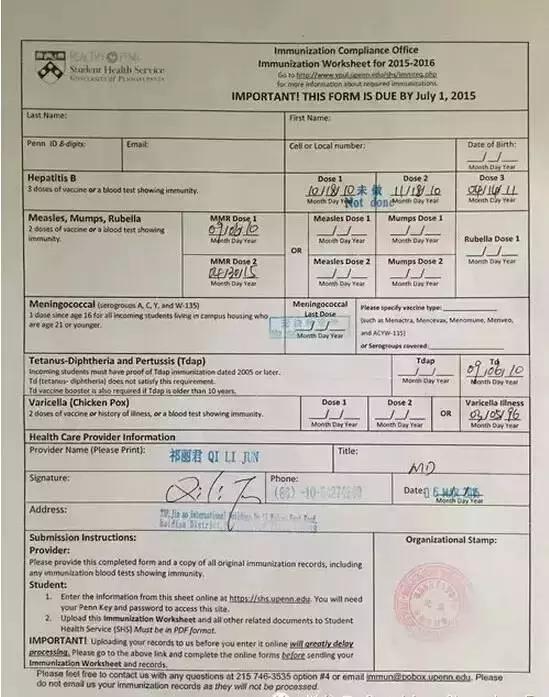 Student Health Service
UNIVERSITY OF PENNSYLVANIA
Immunization Compliance Office
Immunization Worksheet for 2015-2016
Go to http://www.vpul.upenn.edu/shs/immreq.php
for more information about required immunizations.
IMPORTANT! THIS FORM IS DUE BY July 1, 2015
Last Name:
First Name:
Penn ID 8-digits:
Email:
Cell or Local number:
Date of Birth:
Month Day Year
Hepatitis B
3 doses of vaccine or a blood test showing immunity.
Dose 1
10/18/10
Month Day Year
未做
Not done
Dose 2
11/18/10
Month Day Year
Dose 3
Month Day Year
Measles, Mumps, Rubella
2 doses of vaccine or a blood test showing
immunity.
MMR Dose 1
09/06/10
Month Day Year
MMR Dose 2
Month Day Year
OR
Measles Dose 1
Month Day Year
Measles Dose 2
Month Day Year
Mumps Dose 1
Month Day Year
Mumps Dose 2
Month Day Year
Rubella Dose 1
Month Day Year
Meningococcal (serogroups A, C, Y, and W-135)
1 dose since age 16 for all incoming students living in campus housing who
are age 21 or younger.
Meningococcal
Last Dose
Month Day Year
Please specify vaccine type:
(such as Menactra, Mencevax, Menomune, Menveo,
and ACYW-135)
or Serogroups covered:
Tetanus-Diphtheria and Pertussis (Tdap)
Incoming students must have proof of Tdap immunization dated 2005 or later.
Td (tetanus- diphtheria) does not satisfy this requirement.
Td vaccine booster is also required if Tdap is older than 10 years.
Tdap
Month Day Year
Td
09/06/10
Month Day Year
Varicella (Chicken Pox)
2 doses of vaccine or history of illness, or a blood test showing immunity.
Dose 1
Month Day Year
Dose 2
Month Day Year
OR
Varicella Illness
03/05/96
Month Day Year
Health Care Provider Information
Provider Name (Please Print):
祁丽君 QI LI JUN
Title:
MD
Signature:
Phone:
Date:
Month Day Year
Address:
Haidian District,
Submission Instructions:
Provider:
Please provide this completed form and a copy of all original immunization records, including
any immunization blood tests showing immunity.
Student:
1. Enter the information from this sheet online at https://shs.upenn.edu. You will need
your Penn Key and password to access this site.
2. Upload this Immunization Worksheet and all other related documents to Student
Health Service (SHS) Must be in PDF format.
IMPORTANT! Uploading your records to us before you enter it online will greatly delay
processing. Please go to the above link and complete the online forms before sending your
Immunization Worksheet and records.
Organizational Stamp:
Please feel free to contact us with any questions at 215 746-3535 option #4 or email immun@pobox.upenn.edu. Please
do not email us your immunization records as they will not be processed.